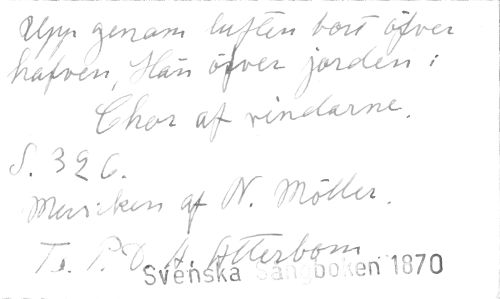 Upp genom luften bort öfver
hafven, Hän öfver jorden:
Chor af vindarne.
S. 326.
Musiken af N. Möller.
T. P. D. A. Atterbom
Svenska Sångboken 1870